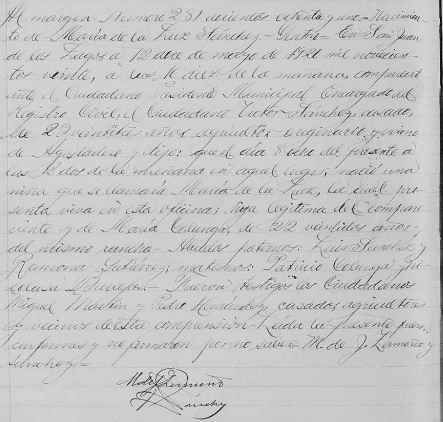 Al margen - Numero 281 docientos ochenta y uno - Nacimien
to de Maria de la Luz Sánchez - Centro - En San Juan
de los Lagos, a 12 doce de marzo de 1920 mil novecien
tos veinte, a las 10 diez de la mañana, compareció
ante el Ciudadano Presidente Municipal Encargado del
Registro Civil, el Ciudadano Victor Sánchez, casado,
de 27 veintisiete años agricultor originario y vecino
de Agostadero y dijo: que el día 8 ocho del presente a
las 2 dos de la mañana en aquel lugar, nació una
niña que se llamará Maria de la Luz, la cual pre
senta viva en esta oficina; hija legitima del compare
ciente y de Maria de 22 veintidos años y
del mismo rancho - Abuelos paternos: Luis Sánchez y
Ramona Gutiérrez; maternos: Patricio y Ni
colasa - Fueron testigos los Ciudadanos
Miguel Martín y Pedro Hernández casados agricultores
y vecinos de esta comprensión - Leida la presente fueron
conformes y no firmaron por no saber - M. de J. Lomeño y
Sánchez -
M. de J. Lomeño
Sánchez